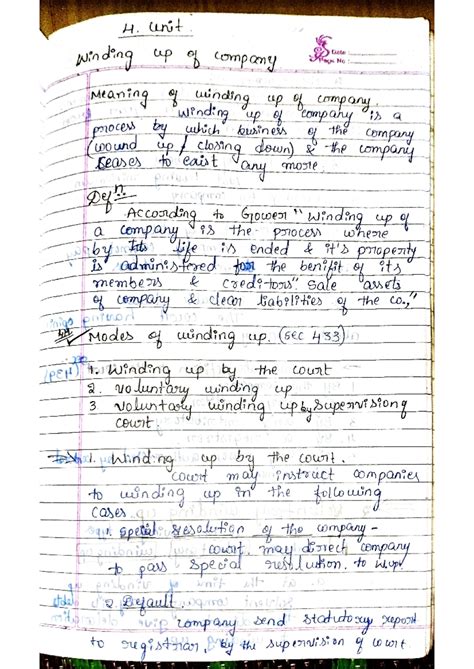 4. Unit.
Date :
Page No :
Winding up of company
Meaning of winding up of company.
Winding up of company is a
process by which business of the company
(wound up / closing down) & the company
ceases to exist any more.
Defn.
According to Gower "Winding up of
a company is the process where
by its life is ended & it's property
is administered for the benifit of its
members & creditors" Sale assets
of company & clear liabilities of the co.,"
Modes of winding up. (SEC 433)
1. Winding up by the court
2. Voluntary winding up
3 Voluntary winding up by Supervision of
court.
1. Winding up by the court.
Court may instruct companies
to winding up in the following
cases.
1. Special resolution of the company -
Court may direct company
to pass special resolution. to
2. Default.
company send statutory report
to registrar by the supervision of court.